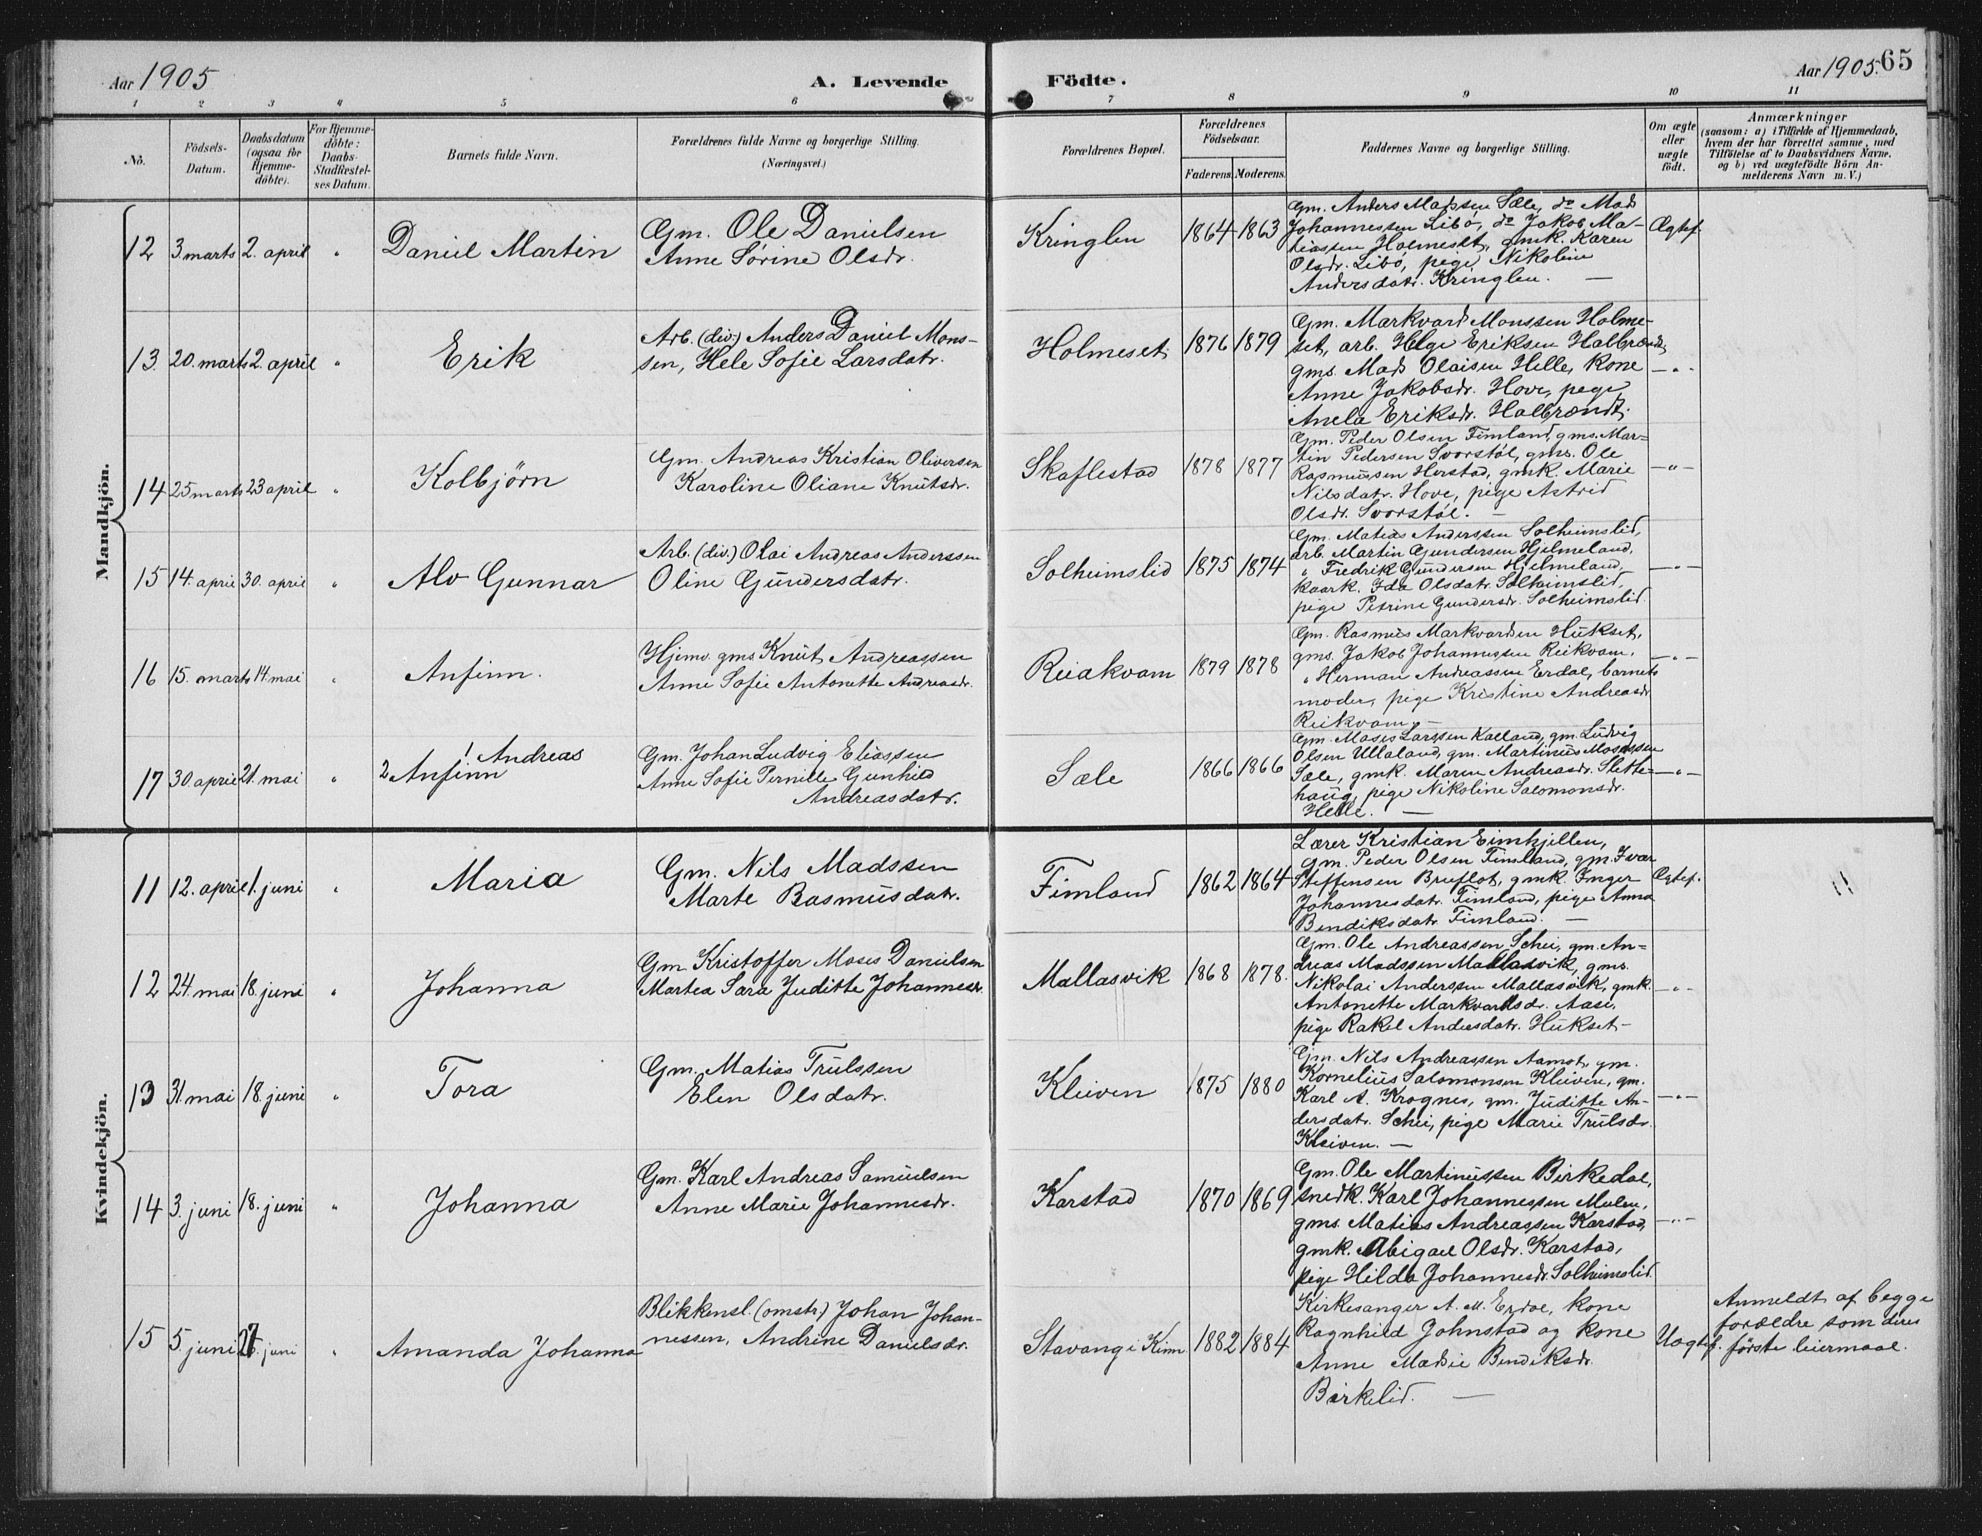 Aar 1905
A. Levende Födte.
Aar 1905. 65
1 2 3 4 5 6 7 8 9 10 11
No.
Födsels-Datum.
Daabsdatum (ogsaa for Hjemme-döbte).
For Hjemme-döbte: Daabs-Stadfæstel-ses Datum.
Barnets fulde Navn.
Forældrenes fulde Navne og borgerlige Stilling.
(Næringsvei.)
Forældrenes Bopæl.
Forældrenes Födselsaar.
Faderens. Moderens.
Faddernes Navne og borgerlig Stilling.
Om ægte eller uægte födt.
Anmærkninger
(saasom: a) i Tilfælde af Hjemmedaab,
hvem der har forrettet samme, med
Tilföielse af to Daabsvidners Navne,
og b) ved uægtefödte Börn An-
melderens Navn m. V.)
Mandkjön.
12 3 marts 2. april " Daniel Martin
Gm. Ole Danielsen
Anne Sørine Olsdr.
Kringlen 1864 1863
Gm. Anders Madssen Sæle, do Mads
Johannessen Libø, do Jakob Ma-
tiassen Holmeset, gmk. Karen
Olsdr. Libø, pige Nikoline
Andersdatr. Kringlen. —
Ægtef.
13. 20. marts 2. april " Erik
Arb. (div.) Anders Daniel Mons-
sen, Hele Sofie Larsdatr.
Holmeset 1876 1879
Gm. Markvard Monssen Holme-
set, arb. Helge Eriksen Halbrendt,
gms. Mads Olaisen Helle, kone
Anne Jakobsdr. Hove, pige
Anela Eriksdr. Halbrendt.
—"—
14 25 marts 23 april " Kolbjørn
Gm. Andreas Kristian Oliversen
Karoline Oliane Knutsdr.
Skaflestad 1878 1877
Gm. Peder Olsen Fimland, gms. Mar-
tin Pedersen Svorstøl, gms. Ole
Rasmussen Herstad, gmk. Marie
Nilsdatr. Hove, pige Astrid
Olsdr. Svorstøl. —
—"—
15 14. april 30. april " Alv Gunnar
Arb. (div.) Olai Andreas Anderssen
Oline Gundersdatr.
Solheimslid 1875 1874
Gm. Matias Anderssen Solheimslid,
arb. Martin Gundersen Hjelmeland,
" Fredrik Gundersen Hjelmeland,
kaark. Ida Olsdatr. Solheimslid,
pige Petrine Gundersdr. Solheimslid.
—"—
16 15. marts 14. mai " Anfinn.
Hjemv. gms Knut Andreassen
Anne Sofie Antonette Andreasdr.
Reiakvam 1879 1878
Gm. Rasmus Markvardsen Hukset,
gms. Jakob Johannessen Reikvam,
" Herman Andreassen Erdal, barnets
moder, pige Kristine Andreasdr
Reikvam. —
—"—
17 30 april 21. mai " 2 Anfinn 1 Andreas
Gm. Johan Ludvig Eliassen
Anne Sofie Pernille Gunhild
Andreasdatr.
Sæle 1866 1866
Gm. Moses Larssen Kalland, gm. Ludvig
Olsen Ullaland, gm. Martinus Mosessen
Sæle, gmk. Maren Andreasdr. Slette-
haug, pige Nikoline Salomonsdr.
Helle. —
—"—
Kvindekjön.
11 12. april 1. juni " Maria
Gm. Nils Madssen
Marte Rasmusdatr.
Fimland 1862 1864
Lærer Kristian Eimhjellen,
gm. Peder Olsen Fimland, gm. Ivar
Steffensen Bruflot, gmk. Inger
Johannesdatr. Fimland, pige Anna
Bendiksdatr. Fimland. —
Ægtef.
12 24. mai 18. juni " Johanna
Gm. Kristoffer Moses Danielsen
Martea Sara Juditte Johannesdr.
Mallasvik 1868 1878.
Gm. Ole Andreassen Schei, gm. An-
dreas Madssen Mallasvik, gms.
Nikolai Anderssen Mallasvik, gmk.
Antonette Markvardsdr. Aase,
pige Rakel Andersdatr. Hukset —
—"—
13 31. mai 18. juni " Tora
Gm. Matias Trulssen
Elen Olsdatr.
Kleiven 1875 1880
Gm. Nils Andreassen Aamot, gm.
Kornelius Salomonsen Kleiven, gm.
Karl A. Krognes, gm. Juditte An-
dersdatr. Schei, pige Marie Trulsdr.
Kleiven. —
—"—
14 3. juni 18. juni " Johanna
Gm. Karl Andreas Samuelsen
Anne Marie Johannesdr.
Karstad 1870 1869
Gm. Ole Martinussen Birkedal,
snedk. Karl Johannessen Mulen,
gms. Matias Andreassen Karstad,
gmk. Abigael Olsdr. Karstad,
pige Hilda Johannesdr. Solheimslid.
—"—
15 5. juni juni " Amanda Johanna
Blikkensl. (omstr.) Johan Johan-
nessen, Andrine Danielsdr.
Stavang i Kinn 1882 1884
Kirkesanger A. M. Erdal, kone
Ragnhild Johnstad og kone
Anne Marie Bendiksdr.
Birkelid. —
Uægtef.
Anmeldt af begge
forældre som deres
første leiermaal.